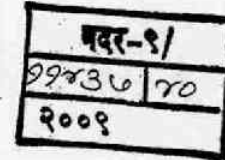 वदर-९/
११४३७ | ४०
२००९